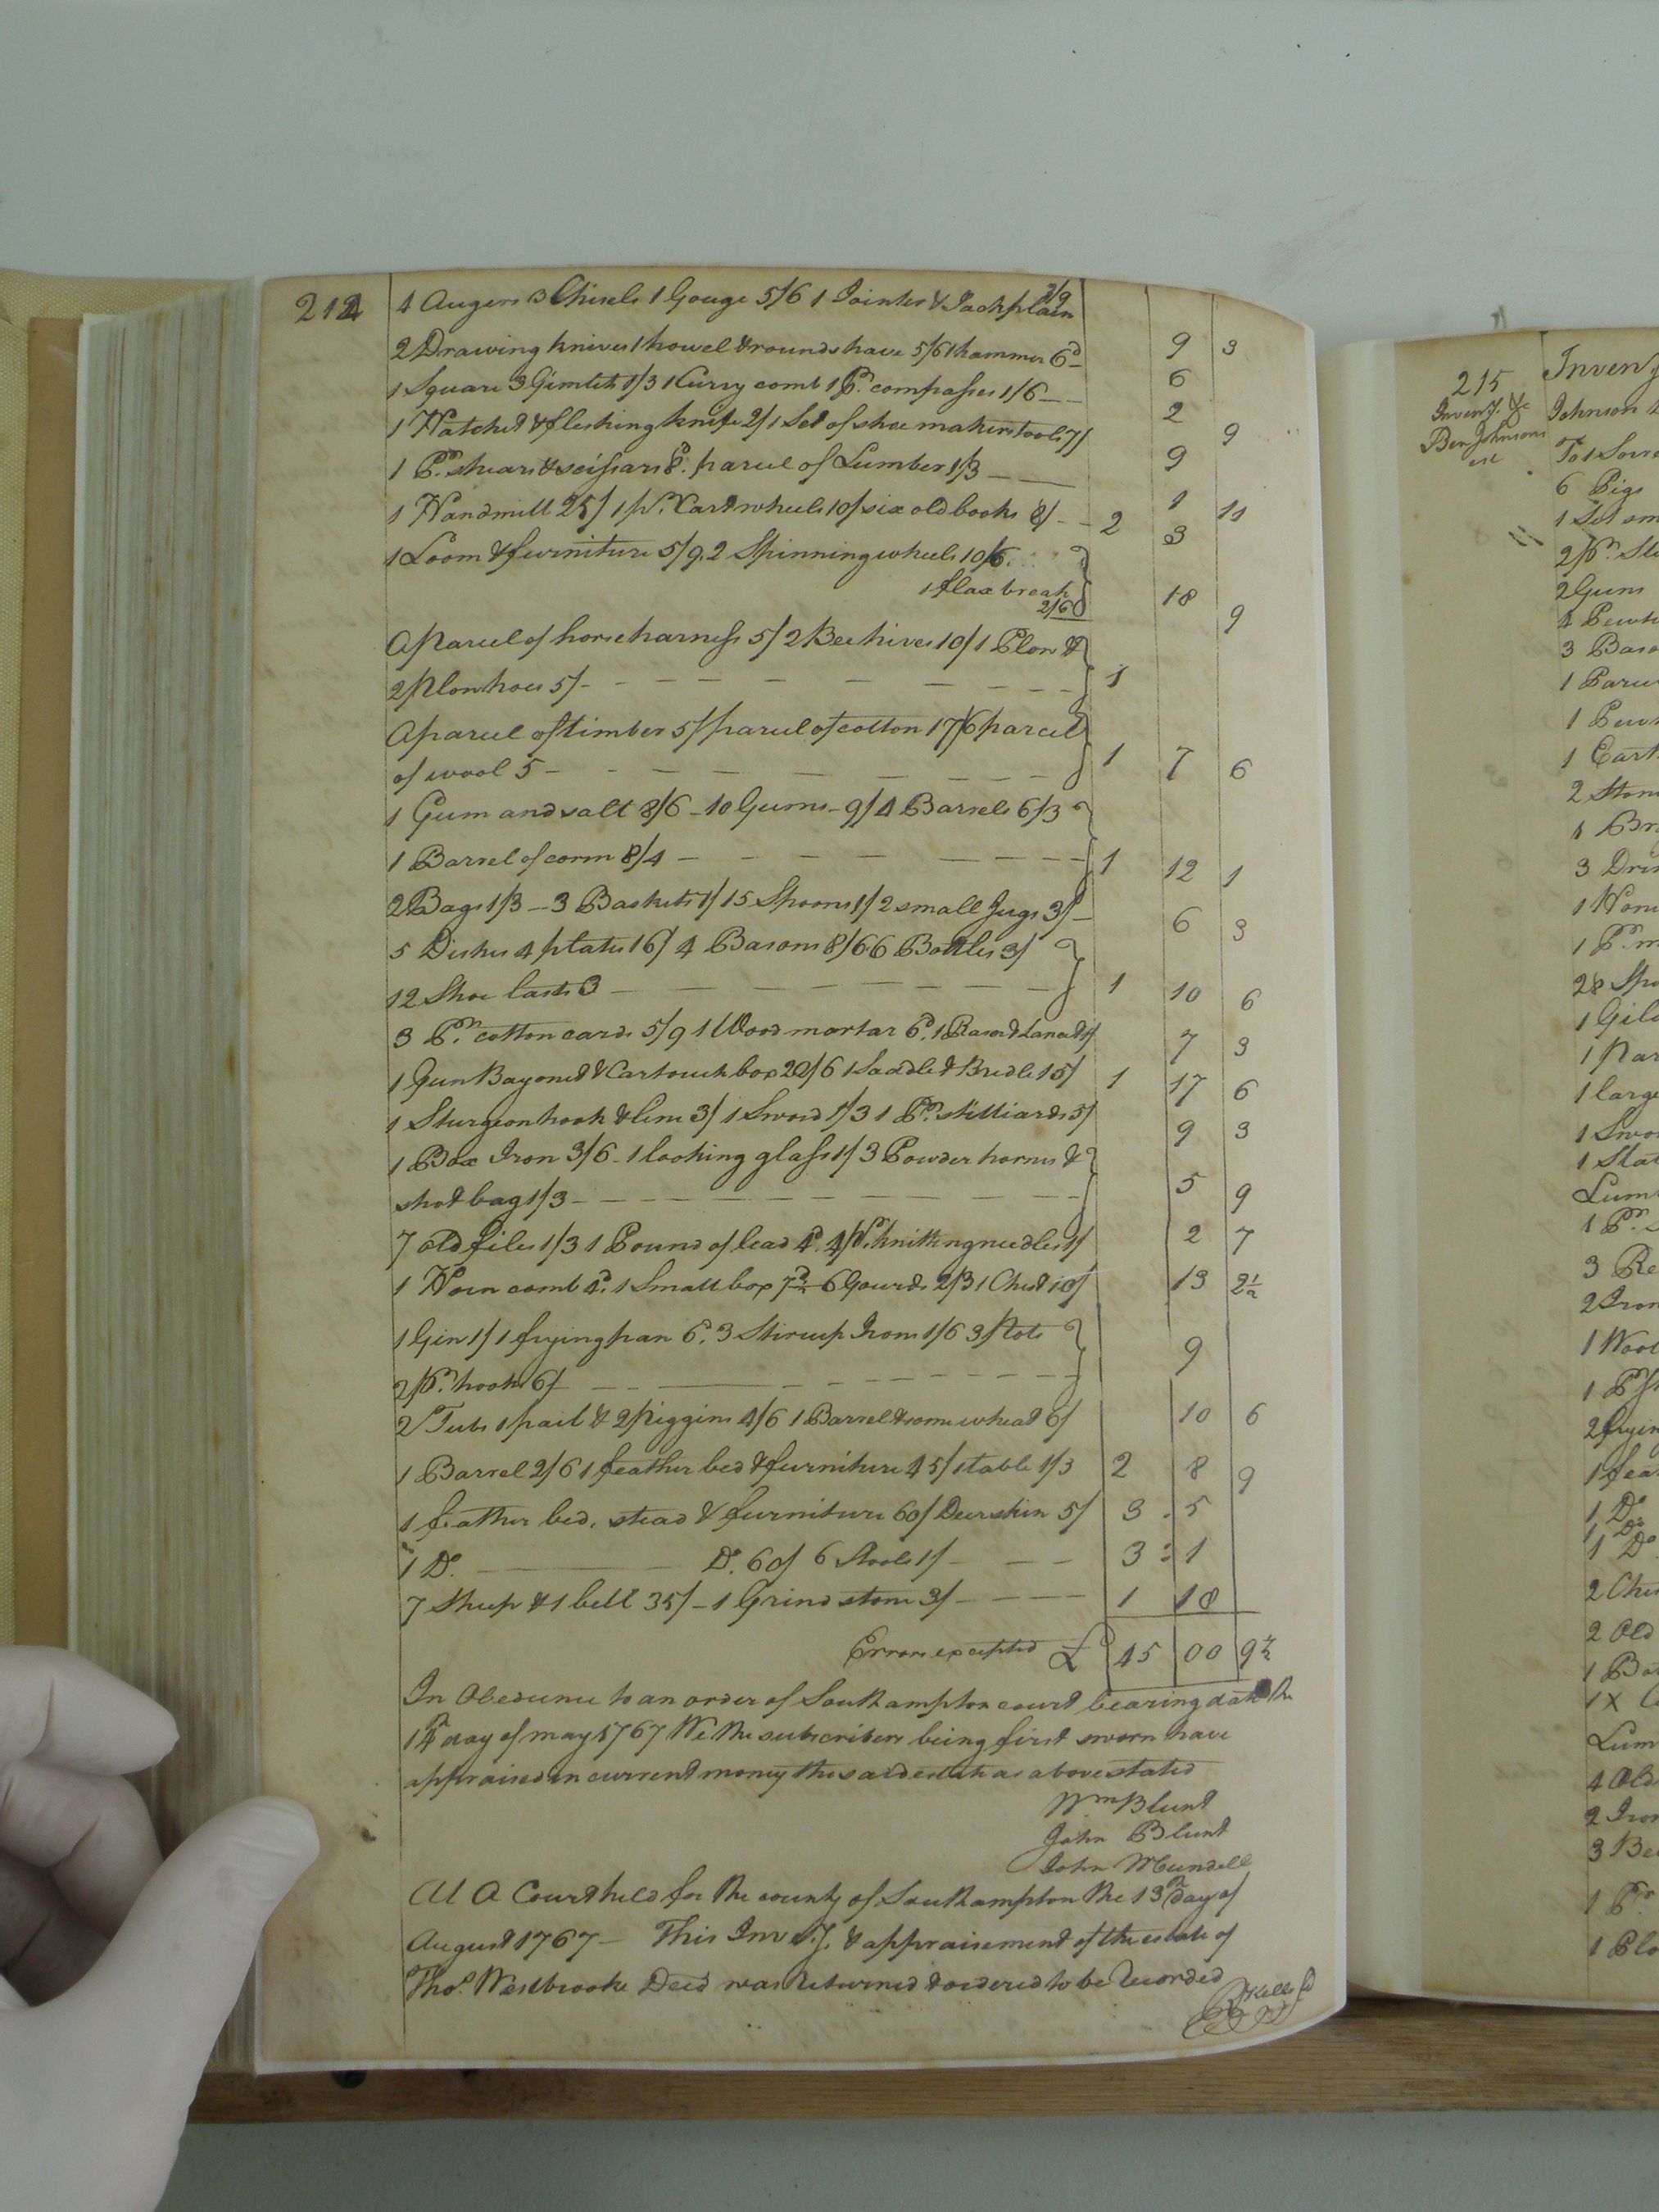 214
4 Augers 3 Chisels 1 Gouge 5/6 1 Jointer & Jackplain 3/9 9 3
2 Drawing knives 1 howel & roundshave 5/6 1 hammer 6d 6
1 Square 3 Gimlets 1/3 1 Curry comb 1 Pr. compasses 1/6 2 9
1 Hatchet & fleshing knife 2/ 1 Set of shoe makers tools 7/ 9
1 Pr. shears & scissars 8d. parcel of Lumber 1/3 1 11
1 Handmill 25/ 1 pr. Cart wheels 10/ six old books 8/ 2 3
1 Loom & furniture 5/9. 2 Spinning wheels 10/6.
1 flax break 2/6 18 9
A Parcel of horse harness 5/ 2 Bee hives 10/ 1 Plow &
2 Plow hoes 5/ 1
A parcel of timber 5/ parcel of cotton 17/6 parcel
of wool 5 1 7 6
1 Gum and salt 8/6 10 Gums 9/ 4 Barrels 6/3
1 Barrel of corn 8/4 1 12 1
2 Bags 1/3 3 Baskets 1/ 15 Spoons 1/ 2 small Jugs 3/ 6 3
5 Dishes 4 plates 16/ 4 Basons 8/6 6 Bottles 3/
12 Shoe lasts 3 1 10 6
3 Pr. cotton cards 5/9 1 Wood mortar 6d. 1 Rasor & Lancet 1/ 7 3
1 Gun Bayonet & Cartouch box 22/6 1 Saddle & Bridle 15/ 1 17 6
1 Sturgeon hook & line 3/ 1 Sword 1/3 1 Pr. stilliards 5/ 9 3
1 Box Iron 3/6 1 looking glass 1/ 3 Powder horns &
shot bag 1/3 5 9
7 old files 1/3 1 Pound of lead 4d. 4 Pr. knitting needles 1/ 2 7
1 Horn comb 4d. 1 Small box 7½d 6 Gourds 2/3 1 Chest 10/ 13 2½
1 Gin 1/ 1 frying pan 6d. 3 Stirrup Irons 1/6 3 Pots
2 Pr. hooks 6/ 9
2 Tubs 1 pail & 2 Piggins 4/6 1 Barrel & some wheat 6/ 10 6
1 Barrel 2/6 1 feather bed & furniture 45/ 1 table 1/3 2 8 9
1 feather bed, stead & furniture 60/ Deerskin 5/ 3 5
1 Do. Do. 60/ 6 Stools 1/ 3 1
7 Sheep & 1 bell 35/ 1 Grind stone 3/ 1 18
Errors excepted £ 45 00 9½
In Obedience to an order of Southampton court bearing date the
14th day of may 1767 We the subscribers being first sworn have
appraised in current money the said estate as above stated
Wm Blunt
John Blunt
John Mundell
At A Court held for the county of Southampton the 13th day of
August 1767 This Inv.ty. & appraisement of the estate of
Thos. Westbrooke Decd was Returned & ordered to be Recorded
215
Inventy. &c
Ben Johnsons
est
Inventy
Johnson
6 Pigs
2 Guns
3 Baso
1 Parce
1 Pewt
2 Stone
1 large
1 Swor
1 Do.
1 Do
2 Old
4 Old